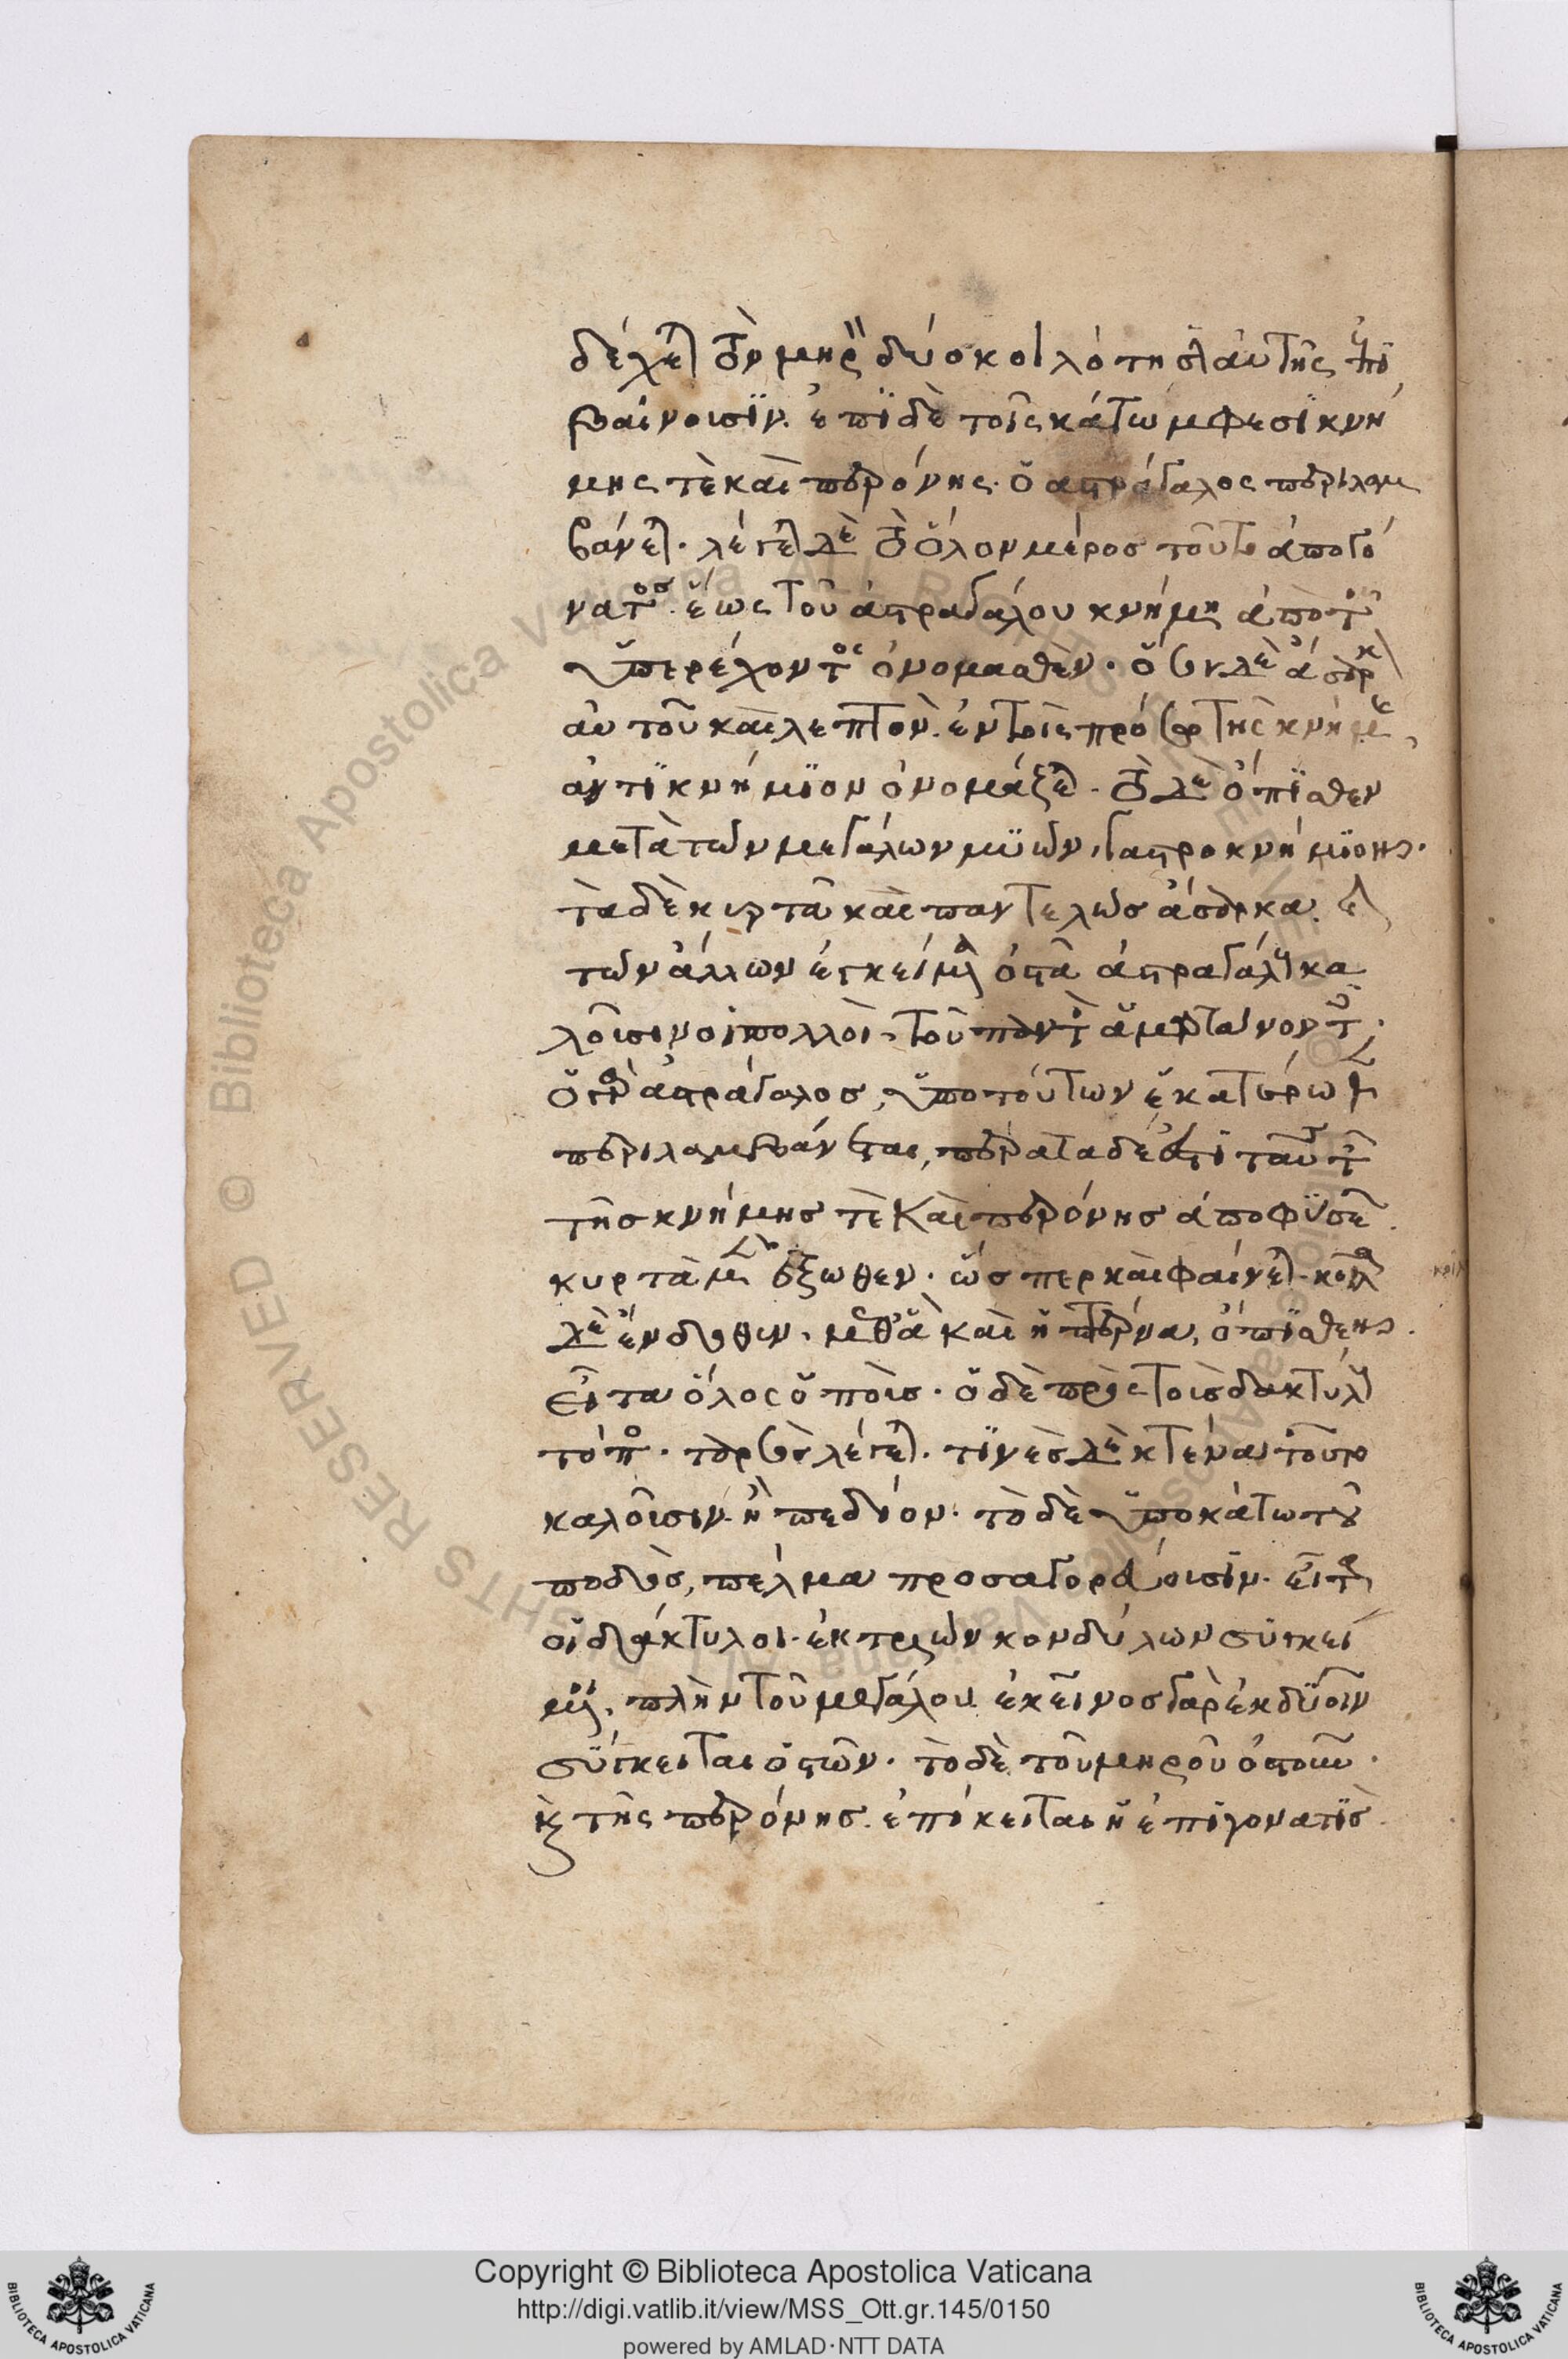 δέχεται τὸν μηρὸν δύο κοιλότησιν αὐτῆς ἐπι
βαίνουσιν. ἐπὶ δὲ τοῖς κάτω μέρεσι κνή
μης τὲ καὶ περόνης. ὁ ἀστράγαλος περιλαμ
βάνεται. λέγεται δὲ τὸ ὅλον μέρος τοῦτο ἀπὸ γό
νατος ἕως τοῦ ἀστραγάλου κνήμη ἀπὸ τοῦ
ὑπερέχοντος ὀνομασθὲν. ὅσον δὲ ἄσαρκον
αὐτοῦ καὶ λεπτὸν. ἐν τοῖς πρόσω τῆς κνήμης,
ἀντικνήμιον ὀνομάζεται. τὸ δὲ ὄπισθεν
μετὰ τῶν μεγάλων μυῶν, γαστροκνήμιον.
τὰ δὲ κυρτὰ καὶ παντελῶς ἄσαρκα.
τῶν ἄλλων ἐγκείμενα ὀστᾶ ἀστραγάλους κα
λοῦσιν οἱ πολλοὶ. τοῦ παντὸς ἁμαρτάνοντες.
ὁ γὰρ ἀστράγαλος, ὑπὸ τούτων ἑκατέρωθεν
περιλαμβάνεται, πέρατα δὲ ἐστὶ ταῦτα
τῆς κνήμης τὲ καὶ περόνης ἀποφύσεις.
κυρτὰ μὲν ἔξωθεν. ὥσπερ καὶ φαίνεται. κοῖλα
δὲ ἔνδοθεν. μεθ' ἃ καὶ ἡ πτέρνα, ὄπισθεν.
εἶτα ὅλος ὁ ποὺς. ὁ δὲ πρὸς τοῖς δακτύλοις
τόπος. ταρσὸς λέγεται. τινὲς δὲ κτένα τοῦτο
καλοῦσιν. ἢ πεδίον. τὸ δὲ ὑποκάτω τοῦ
ποδὸς, πέλμα προσαγορεύουσιν. εἶτα
οἱ δάκτυλοι. ἐκ τριῶν κονδύλων σύγκει
νται. πλὴν τοῦ μεγάλου ἐκεῖνος γὰρ ἐκ δυοῖν
σύγκειται ὀστῶν. τὸ δὲ τοῦ μηροῦ ὀστοῦν.
καὶ τῆς περόνης. ἐπίκειται ἡ ἐπιγονατὶς.
Copyright © Biblioteca Apostolica Vaticana
http://digi.vatlib.it/view/MSS_Ott.gr.145/0150
powered by AMLAD·NTT DATA